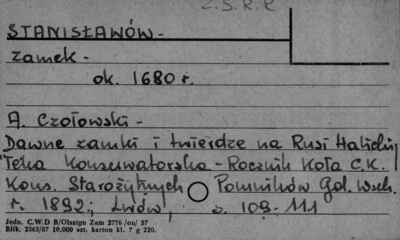 Z.S.R.R
STANISŁAWÓW.-
zamek -
ok. 1680 r.
A. Czołowski -
Dawne zamki i twierdze na Rusi Halickiej
Teka Konserwatorska - Rocznik Koła C.K.
Kons. Starożytnych Pomników Gal. Wsch.
r. 1892; Lwów, s. 109-111
Jedn. C.W.D B/Olsztyn Zam 2776/on/57
Blitk. 2563/57 10.000 szt. karton kl. 7 g 220.